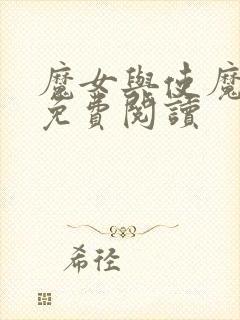 魔女與使魔
免費閱讀
希徑